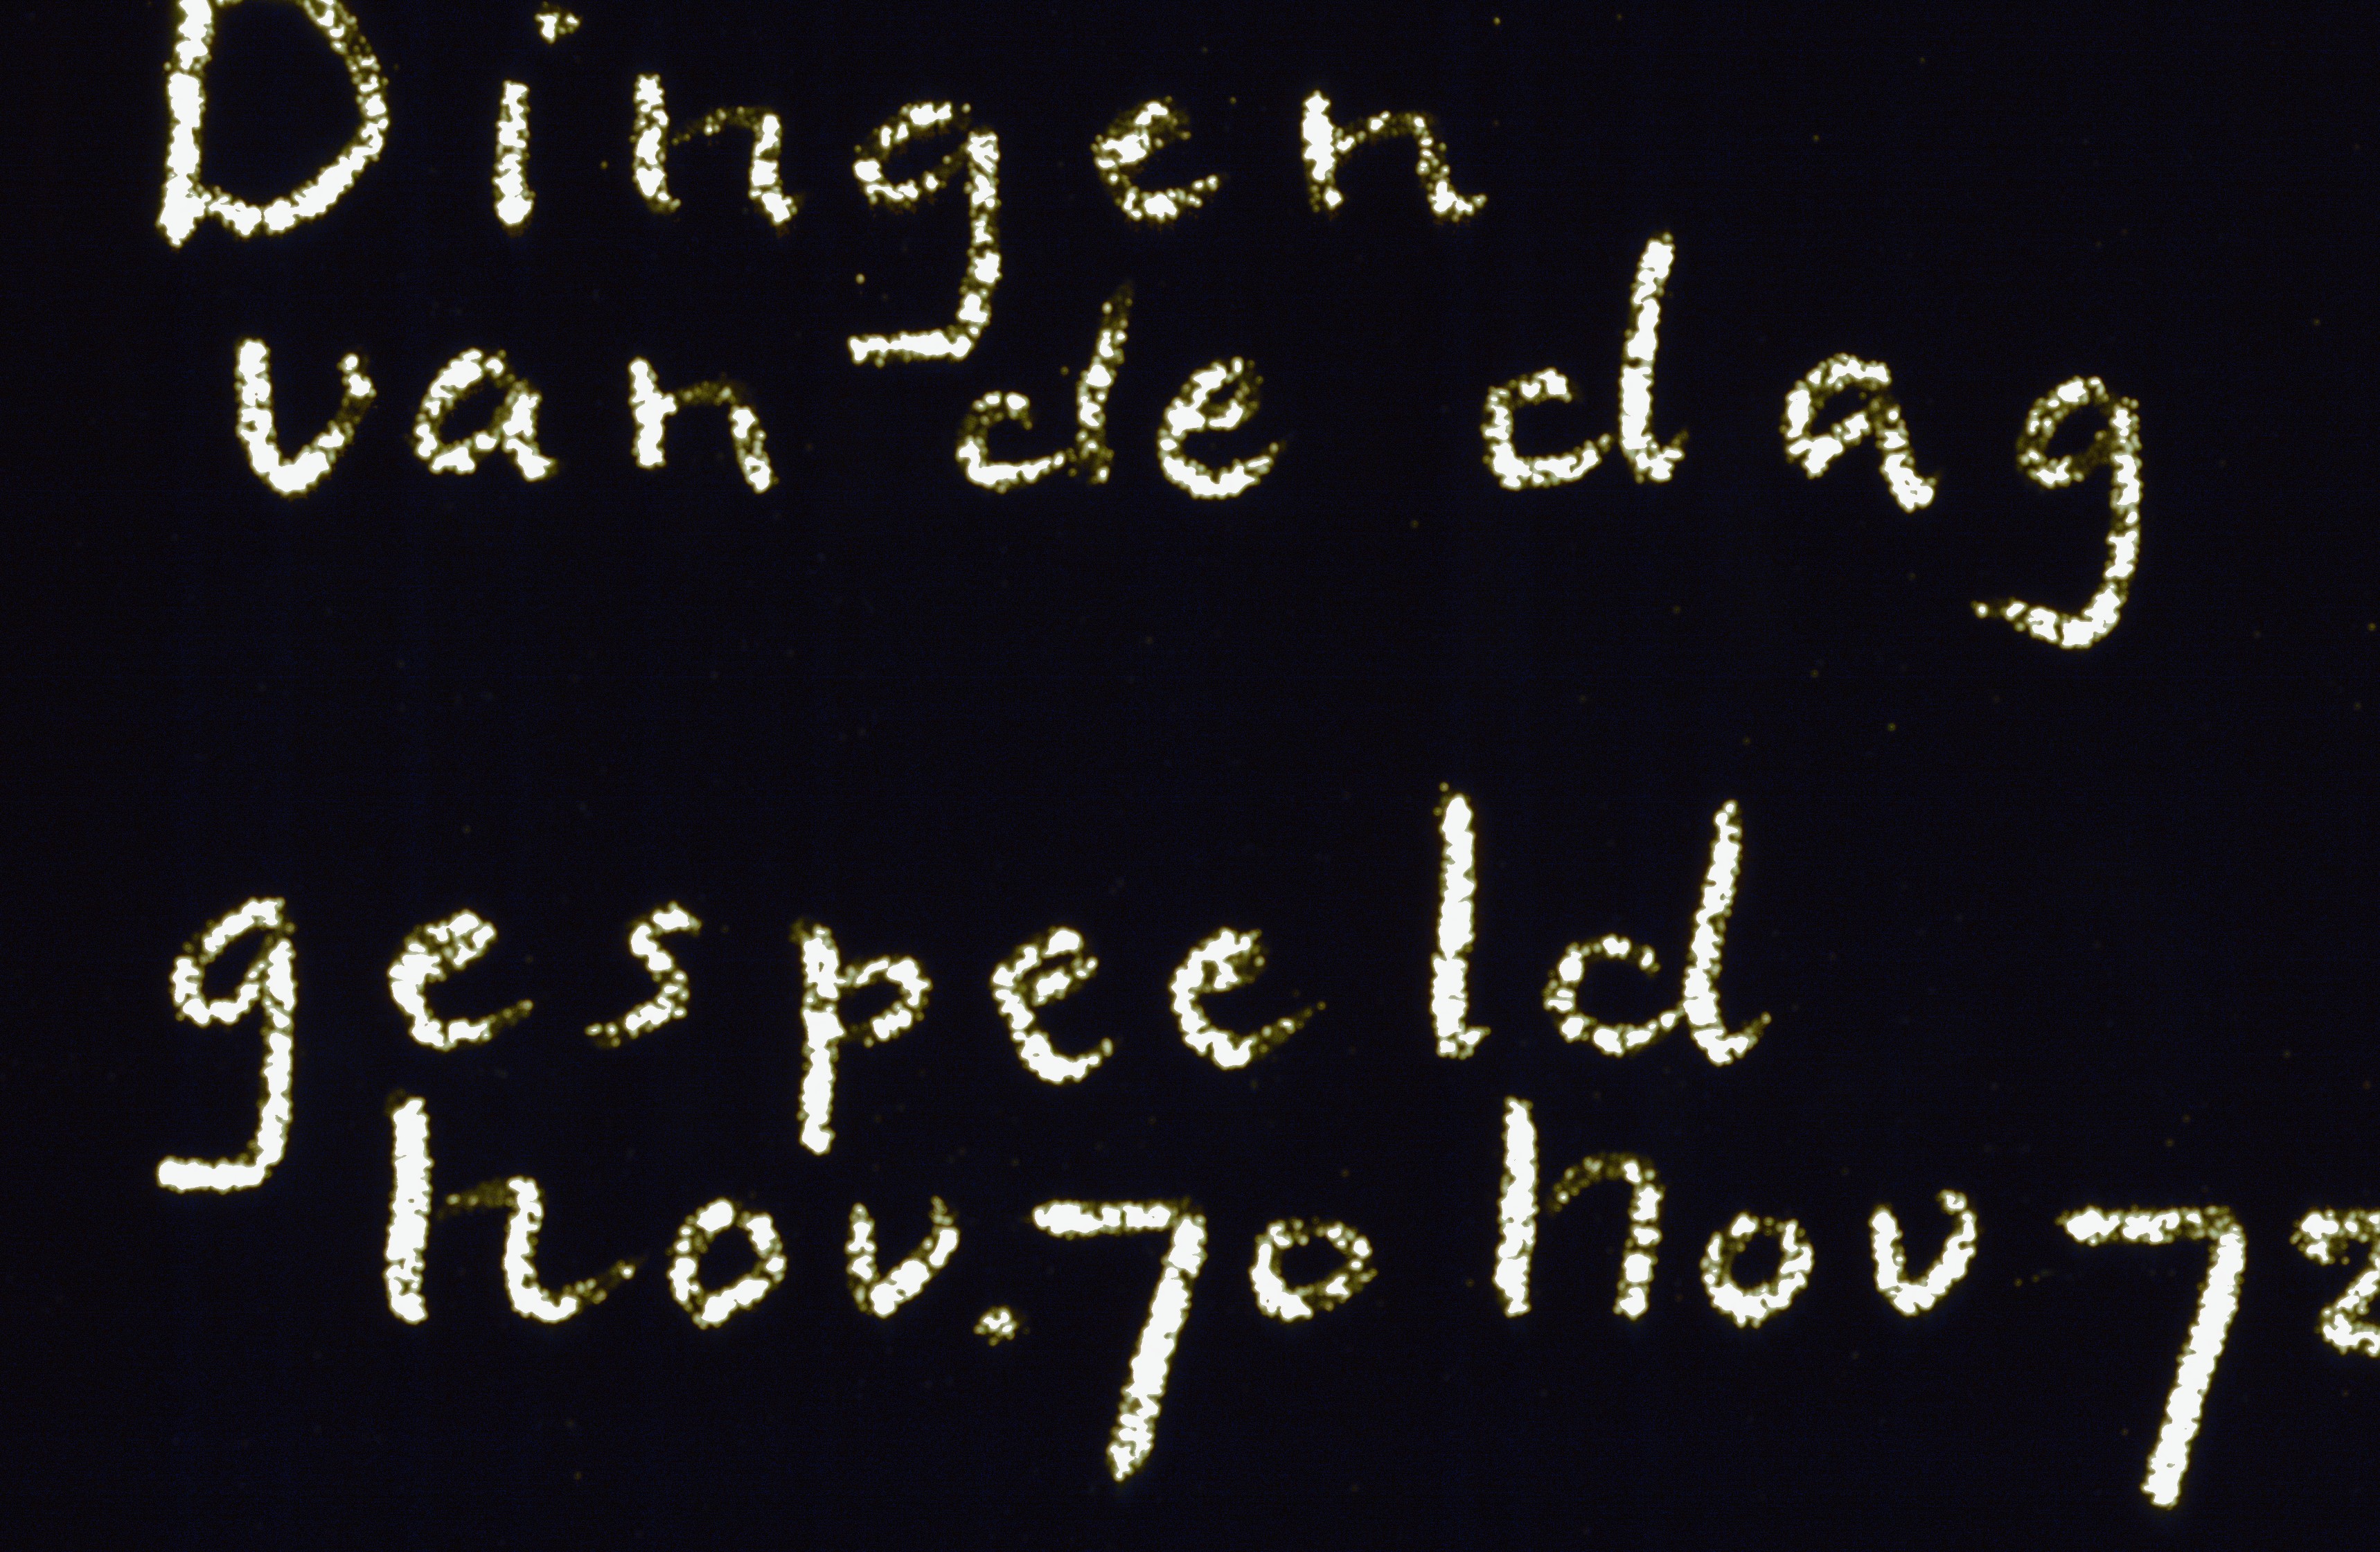 Dingen
van de dag
gespeeld
nov. 70 nov 72